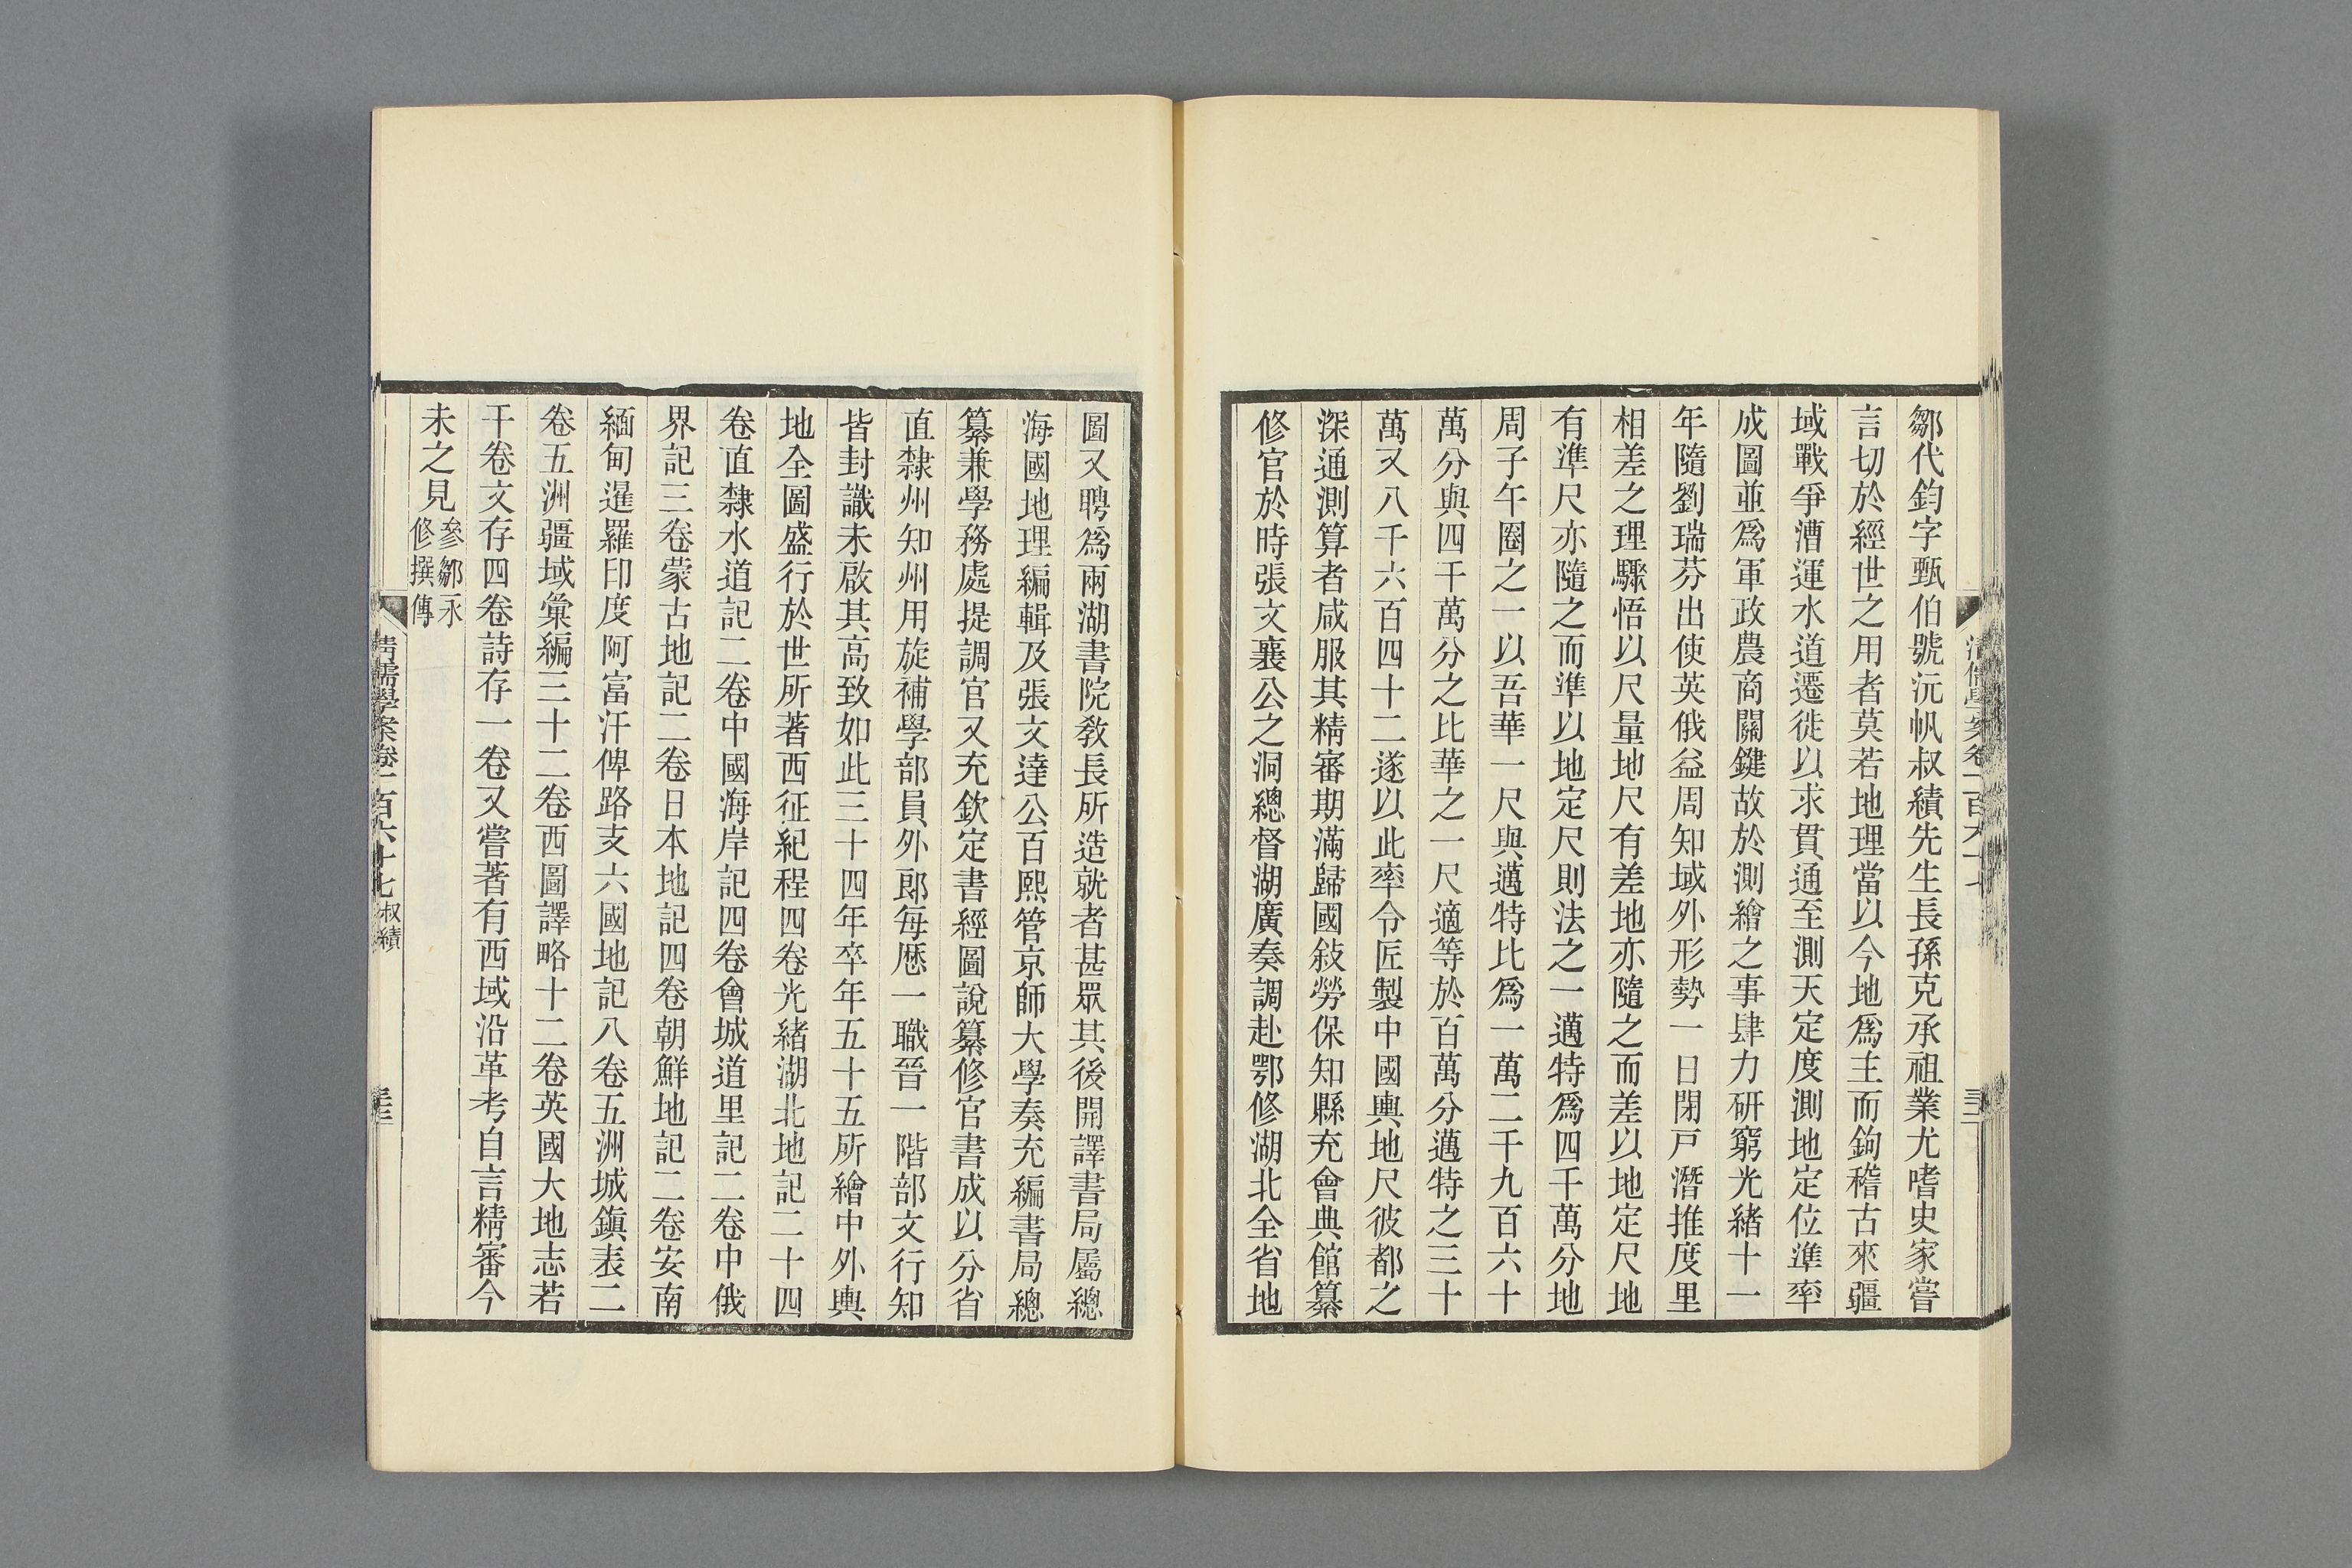 鄒代鈞字甄伯號沅帆叔績先生長孫克承祖業尤嗜史家嘗
言切於經世之用者莫若地理當以今地爲主而鉤稽古來疆
域戰爭漕運水道遷徙以求貫通至測天定度測地定位準率
成圖並爲軍政農商關鍵故於測繪之事肆力研窮光緒十一
年隨劉瑞芬出使英俄益周知域外形勢一日閉戸潛推度里
相差之理驟悟以尺量地尺有差地亦隨之而差以地定尺地
有準尺亦隨之而準以地定尺則法之一邁特爲四千萬分地
周子午圈之一以吾華一尺與邁特比爲一萬二千九百六十
萬分與四千萬分之比華之一尺適等於百萬分邁特之三十
萬又八千六百四十二遂以此率令匠製中國輿地尺彼都之
深通測算者咸服其精審期滿歸國敍勞保知縣充會典館纂
修官於時張文襄公之洞總督湖廣奏調赴鄂修湖北全省地
圖又聘爲兩湖書院教長所造就者甚眾其後開譯書局屬總
海國地理編輯及張文達公百熙管京師大學奏充編書局總
纂兼學務處提調官又充欽定書經圖說纂修官書成以分省
直隸州知州用旋補學部員外郎每歷一職晉一階部文行知
皆封識未啟其高致如此三十四年卒年五十五所繪中外輿
地全圖盛行於世所著西征紀程四卷光緒湖北地記二十四
卷直隸水道記二卷中國海岸記四卷會城道里記二卷中俄
界記三卷蒙古地記二卷日本地記四卷朝鮮地記二卷安南
緬甸暹羅印度阿富汗俾路支六國地記八卷五洲城鎮表二
卷五洲疆域彙編三十二卷西圖譯略十二卷英國大地志若
干卷文存四卷詩存一卷又嘗著有西域沿革考自言精審今
未之見
參鄒永
修撰傳
清儒學案卷一百六十七 叔績